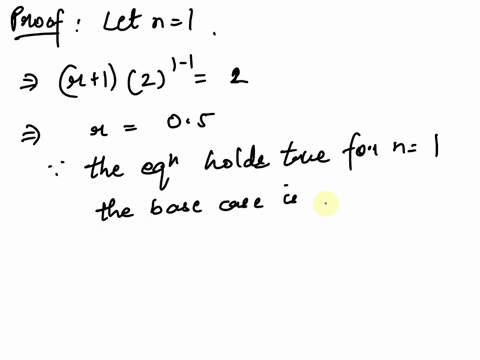 Proof : Let n=1 .
⇒ (r+1) (2)^{1-1} = 2
⇒ r = 0.5
∵ the eqⁿ holds true for n=1
the base case is